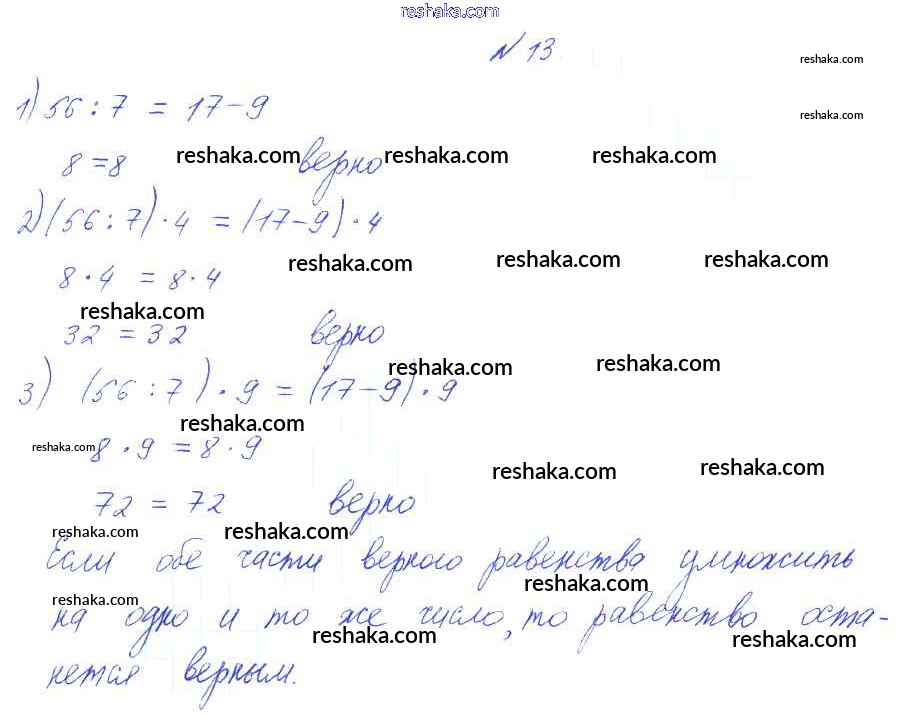 reshaka.com
№ 13.
reshaka.com
1) 56 : 7 = 17 - 9
reshaka.com
8 = 8 reshaka.com верно reshaka.com reshaka.com
2) (56 : 7) · 4 = (17 - 9) · 4
reshaka.com reshaka.com reshaka.com
8 · 4 = 8 · 4
reshaka.com
32 = 32 верно
reshaka.com reshaka.com
3) (56 : 7) · 9 = (17 - 9) · 9
reshaka.com
reshaka.com 8 · 9 = 8 · 9
reshaka.com reshaka.com
72 = 72 верно
reshaka.com reshaka.com
Если обе части верного равенства умножить
reshaka.com
reshaka.com
на одно и то же число, то равенство оста-
reshaka.com reshaka.com
нется верным.